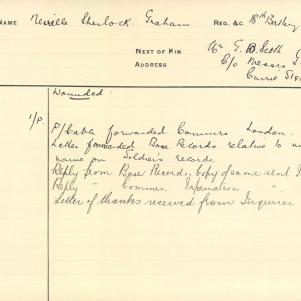 NAME Neville Sherlock Graham REG. &C. 18th Battery
NEXT OF KIN Mr G. B. Scott
ADDRESS C/o Messrs
Currie St
Wounded.
1/P. P/Cable forwarded Commrs London.
Letter forwarded Base Records relative to
name on Soldiers records.
Reply from Base Records. Copy of same sent
Reply " Commrs. Information "
Letter of thanks received from Inquirer